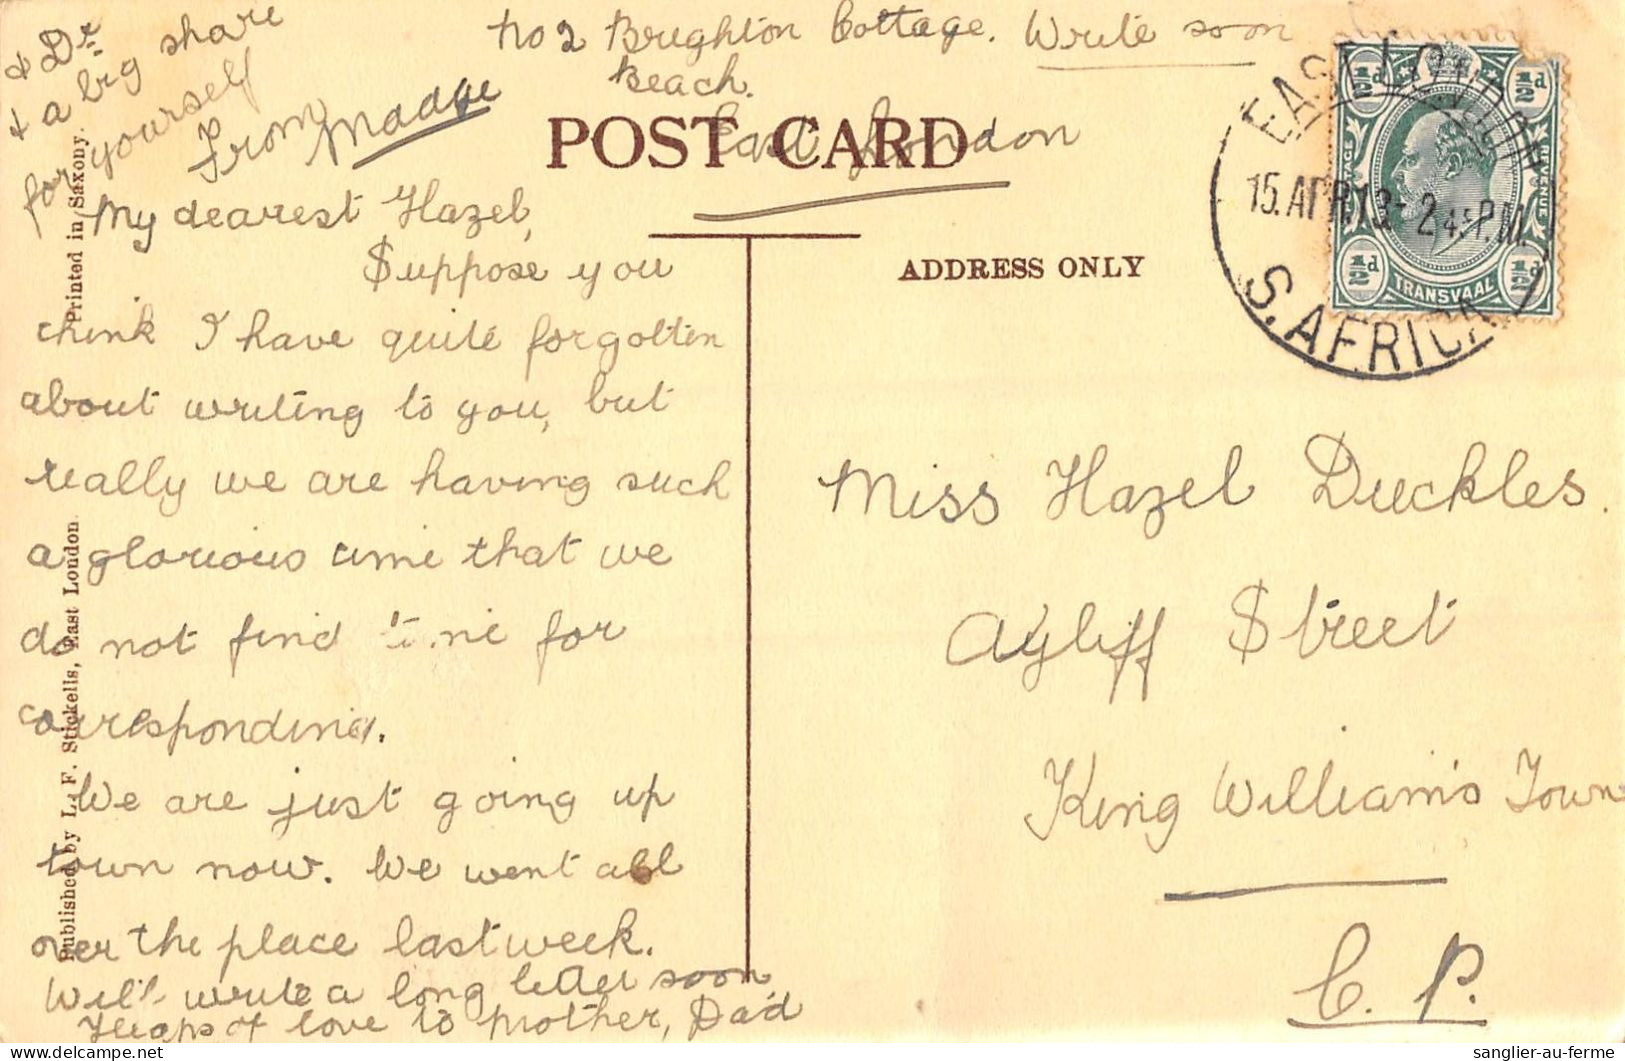 No 2 Brighton Cottage. Write soon
Beach.
East London
POST CARD
ADDRESS ONLY
My dearest Hazel,
Suppose you
think I have quite forgotten
about writing to you, but
really we are having such
a glorious time that we
do not find time for
corresponding.
We are just going up
town now. We went all
over the place last week.
Will write a long letter soon
Heaps of love to mother, Dad
& Dr
& a big share
for yourself
From Madge
Printed in Saxony.
Published by L. F. Stickells, East London.
EAST LONDON
15. APR. 13 - 2 45 P.M.
S. AFRICA
POSTAGE
REVENUE
½d ½d
½d ½d
TRANSVAAL
Miss Hazel Duckles.
Ayliff Street
King William's Town
C. P.
sanglier-au-ferme